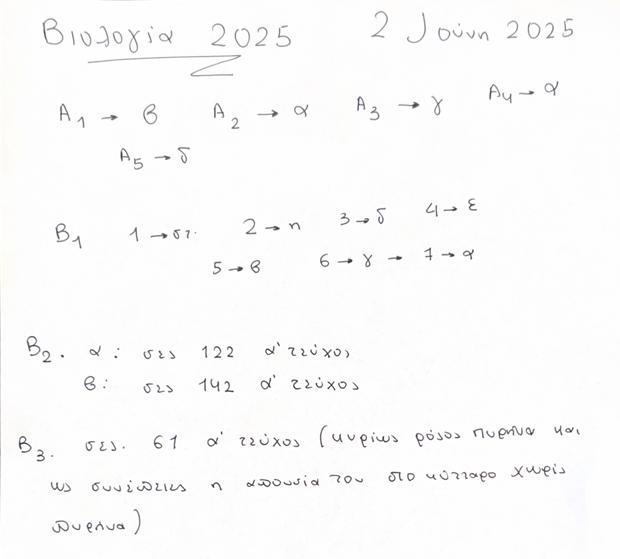 Βιολογία 2025 2 Ιούνη 2025
Α1 → β Α2 → α Α3 → γ Α4 → α
Α5 → δ
Β1 1 → στ. 2 → η 3 → δ 4 → ε
5 → β 6 → γ → 7 → α
Β2. α: σελ 122 α' τεύχος
β: σελ 142 α' τεύχος
Β3. σελ. 61 α' τεύχος (κυρίως ρόλος πυρήνα και
ως συνέπειες η απουσία του στο κύτταρο χωρίς
πυρήνα)